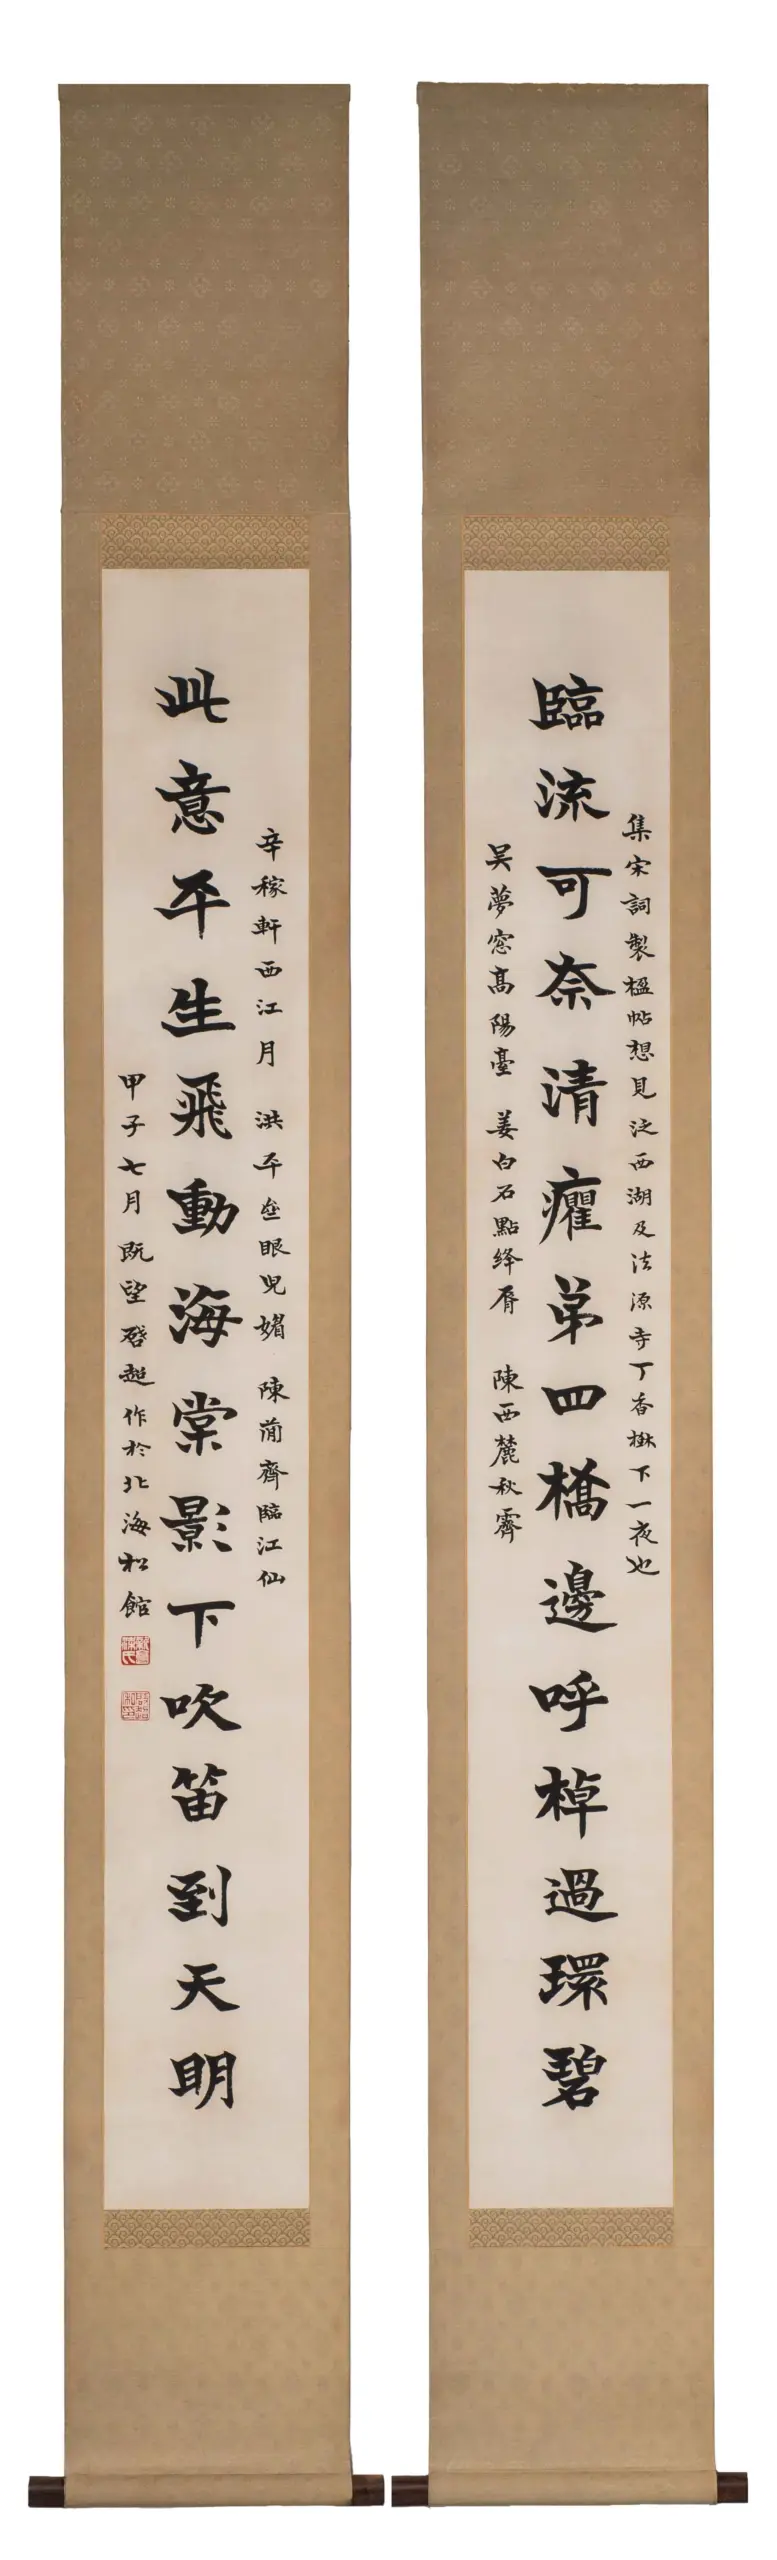 集宋詞製楹帖想見泛西湖及法源寺丁香下一夜也
臨流可奈清癯弟四橋邊呼棹過環碧
吴夢窓高陽臺 姜白石點絳脣 陳西麓秋霽
辛稼軒西江月 洪平亝眼兒媚 陳蕑齋臨江仙
此意平生飛動海棠影下吹笛到天明
甲子七月既望啓超作於北海松館